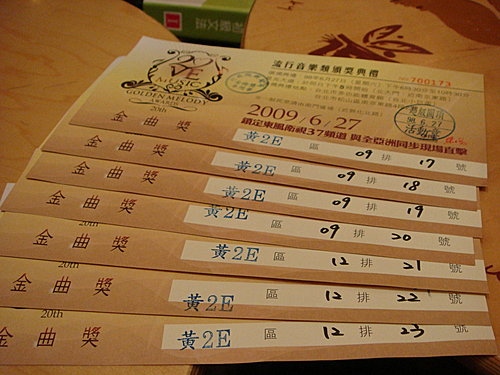 初級文法
1
流行音樂類頒獎典禮
NO 700173
LOVE
MUSIC
GOLDEN MELODY
AWARDS
20th
2009/6/27
98.6.27
活動章
鎖定東風衛視37頻道 與全亞洲同步現場直擊
金曲獎 黃2E 區 09 排 17 號
金曲獎 黃2E 區 09 排 18 號
金曲獎 黃2E 區 09 排 19 號
金曲獎 黃2E 區 09 排 20 號
20th
金曲獎 黃2E 區 12 排 21 號
20th
金曲獎 黃2E 區 12 排 22 號
20th
金曲獎 黃2E 區 12 排 23 號